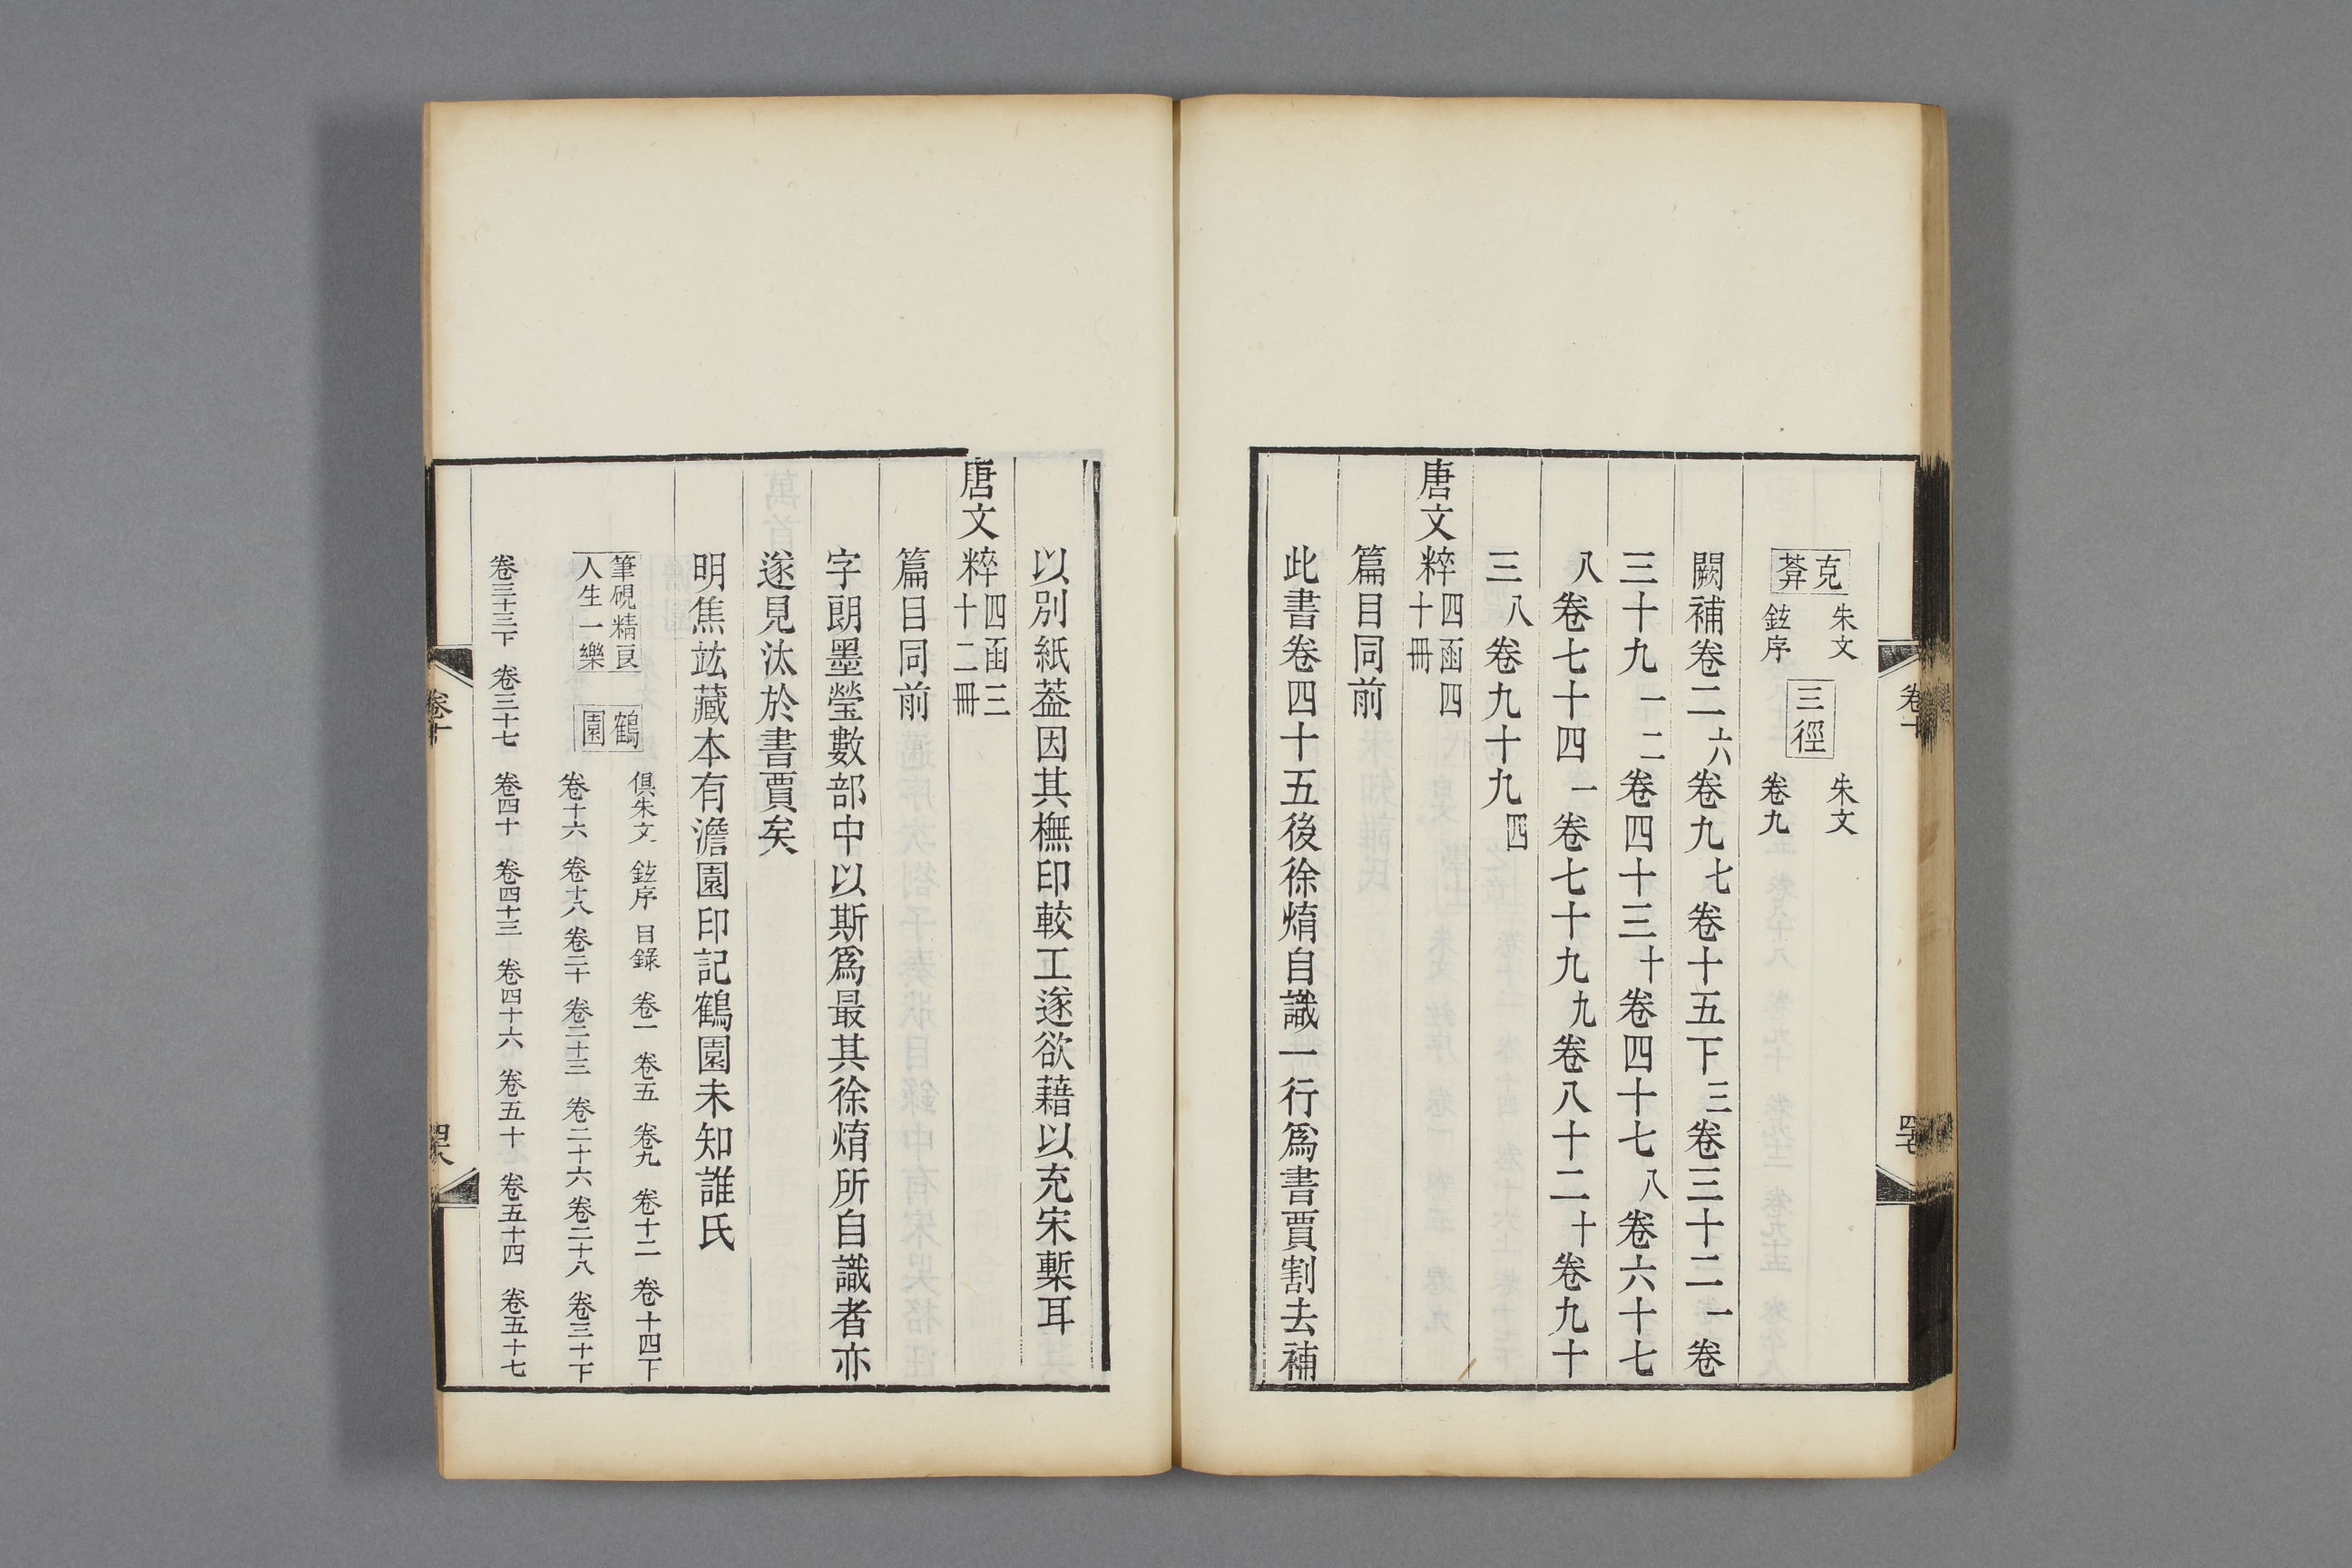 克
葊
朱文
鉉序
三徑
朱文
卷九
闕補卷二六卷九七卷十五下三卷三十二一卷
三十九一二卷四十三十卷四十七八卷六十七
八卷七十四一卷七十九九卷八十二十卷九十
三八卷九十九四
唐文粹四函四十冊
篇目同前
此書卷四十五後徐焴自識一行爲書賈割去補
卷十
四十七
以別紙葢因其橅印較工遂欲藉以充宋槧耳
唐文粹四函三十二冊
篇目同前
字朗墨瑩數部中以斯爲最其徐焴所自識者亦
遂見汰於書賈矣
明焦竑藏本有澹園印記鶴園未知誰氏
筆硯精良
人生一樂
鶴
園
俱朱文 鉉序 目錄 卷一 卷五 卷九 卷十二 卷十四下
卷十六 卷十八 卷二十 卷二十三 卷二十六 卷二十八 卷三十下
卷三十三下 卷三十七 卷四十 卷四十三 卷四十六 卷五十 卷五十四 卷五十七
卷十
四十八